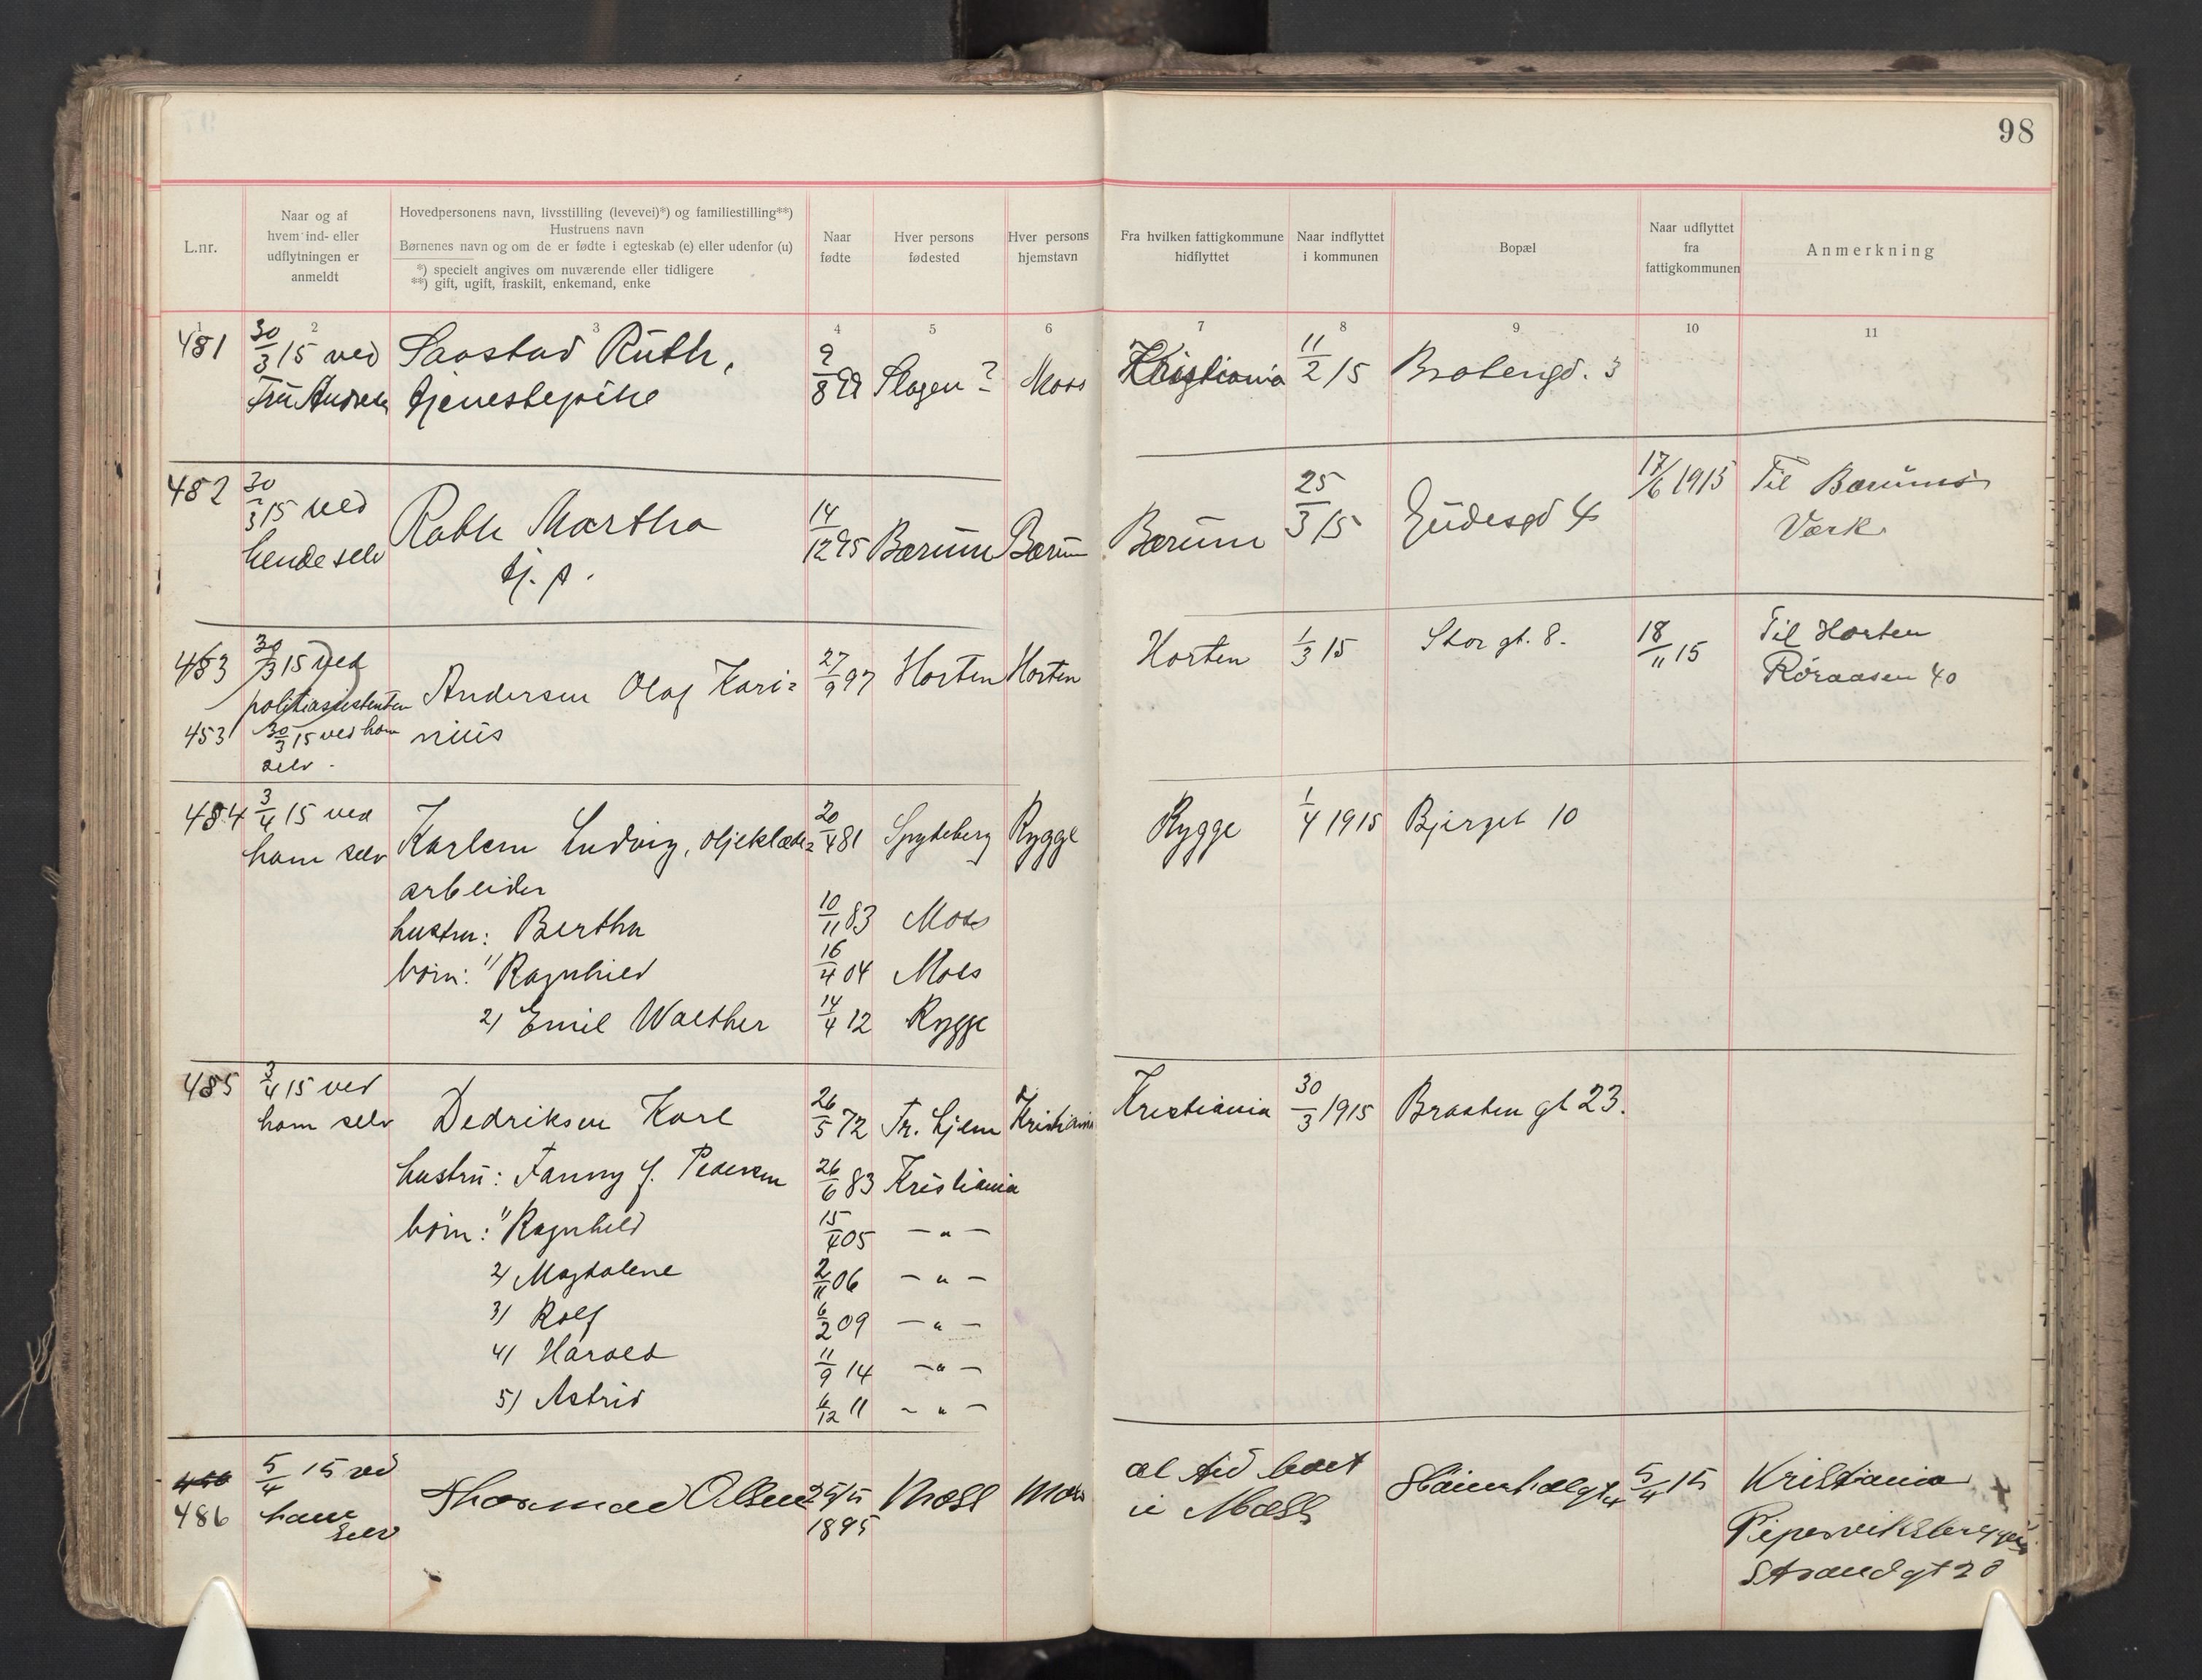 98
L.nr.
Naar og af
hvem ind- eller
udflytningen er
anmeldt
Hovedpersonens navn, livsstilling (levevei)*) og familiestilling**)
Hustruens navn
Børnenes navn og om de er fødte i egteskab (e) eller udenfor (u)
*) specielt angives om nuværende eller tidligere
**) gift, ugift, fraskilt, enkemand, enke
Naar
fødte
Hver persons
fødested
Hver persons
hjemstavn
Fra hvilken fattigkommune
hidflyttet
Naar indflyttet
i kommunen
Bopæl
Naar udflyttet
fra
fattigkommunen
Anmerkning
1 2 3 4 5 6 7 8 9 10 11
481 30/3 15 ved Saastad Ruth, 9/8 99 Slagen ? Moss Kristiania 11/2 15 Bratengd. 3
Fru Andresen tjenestepike
482 30/3 15 ved Rabh Martha 14/12 95 Bærum Bærum Bærum 25/3 15 Gudesgd 4 17/6 1915 Til Bærums
hende selv tj. p. Værk
483 30/3 15 ved Andersen Olaf Kari= 27/9 97 Horten Horten Horten 1/3 15 Storgt. 8. 18/11 15 Til Horten
politiassistenten Røraasen 40
453 30/3 15 ved ham nius
selv.
484 3/4 15 ved Karlsen Ludvig, oljeklæde= 20/4 81 Spydeberg Rygge Rygge 1/4 1915 Bjerget 10
ham selv arbeider
hustru: Bertha 10/11 83 Moss
børn: 1) Ragnhild 16/4 04 Moss
2) Emil Walther 14/4 12 Rygge
485 3/4 15 ved Dedriksen Karl 26/5 72 Tr. hjem Kristiania Kristiania 30/3 1915 Braaten gt 23.
ham selv
hustru: Fanny f. Pedersen 26/6 83 Kristiania
børn: 1) Ragnhild 15/4 05 — " —
2) Magdalene 2/11 06 — " —
3) Rolf 6/2 09 — " —
4) Harald 11/9 14 — " —
5) Astrid 6/12 11 — " —
486 5/4 15 ved Thormod Olsen 25/5 Moss Moss al tid boet 5/4 15 Kristiania +
ham 1895 i Moss Piperviksbryggen
selv Strandgt 28